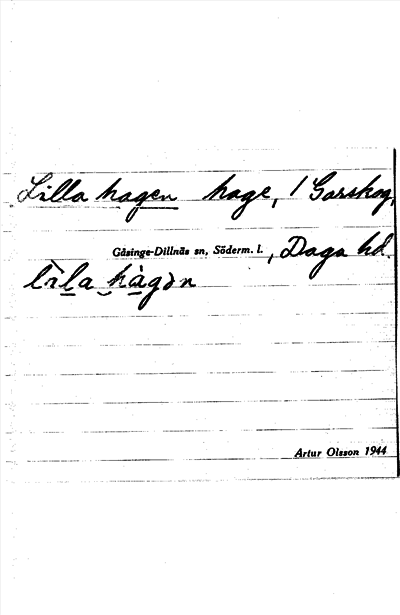 Lilla hagen hage, / Garskog,
Gåsinge-Dillnäs sn, Söderm. l., Daga hd.
lìla hàgən
Artur Olsson 1944